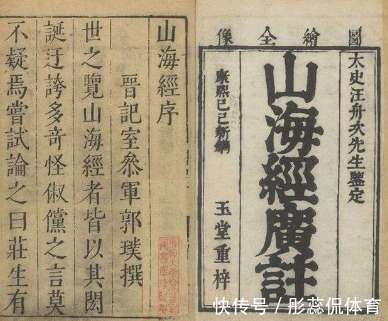 圖繪全像
太史汪舟次先生鑒定
山海經廣註
康熙己巳新鐫
玉堂重梓
山海經序
晉記室參軍郭璞撰
世之覽山海經者皆以其閎
誕迂誇多奇怪俶儻之言莫
不疑焉嘗試論之曰莊生有
快传号 / 彤蕊侃体育